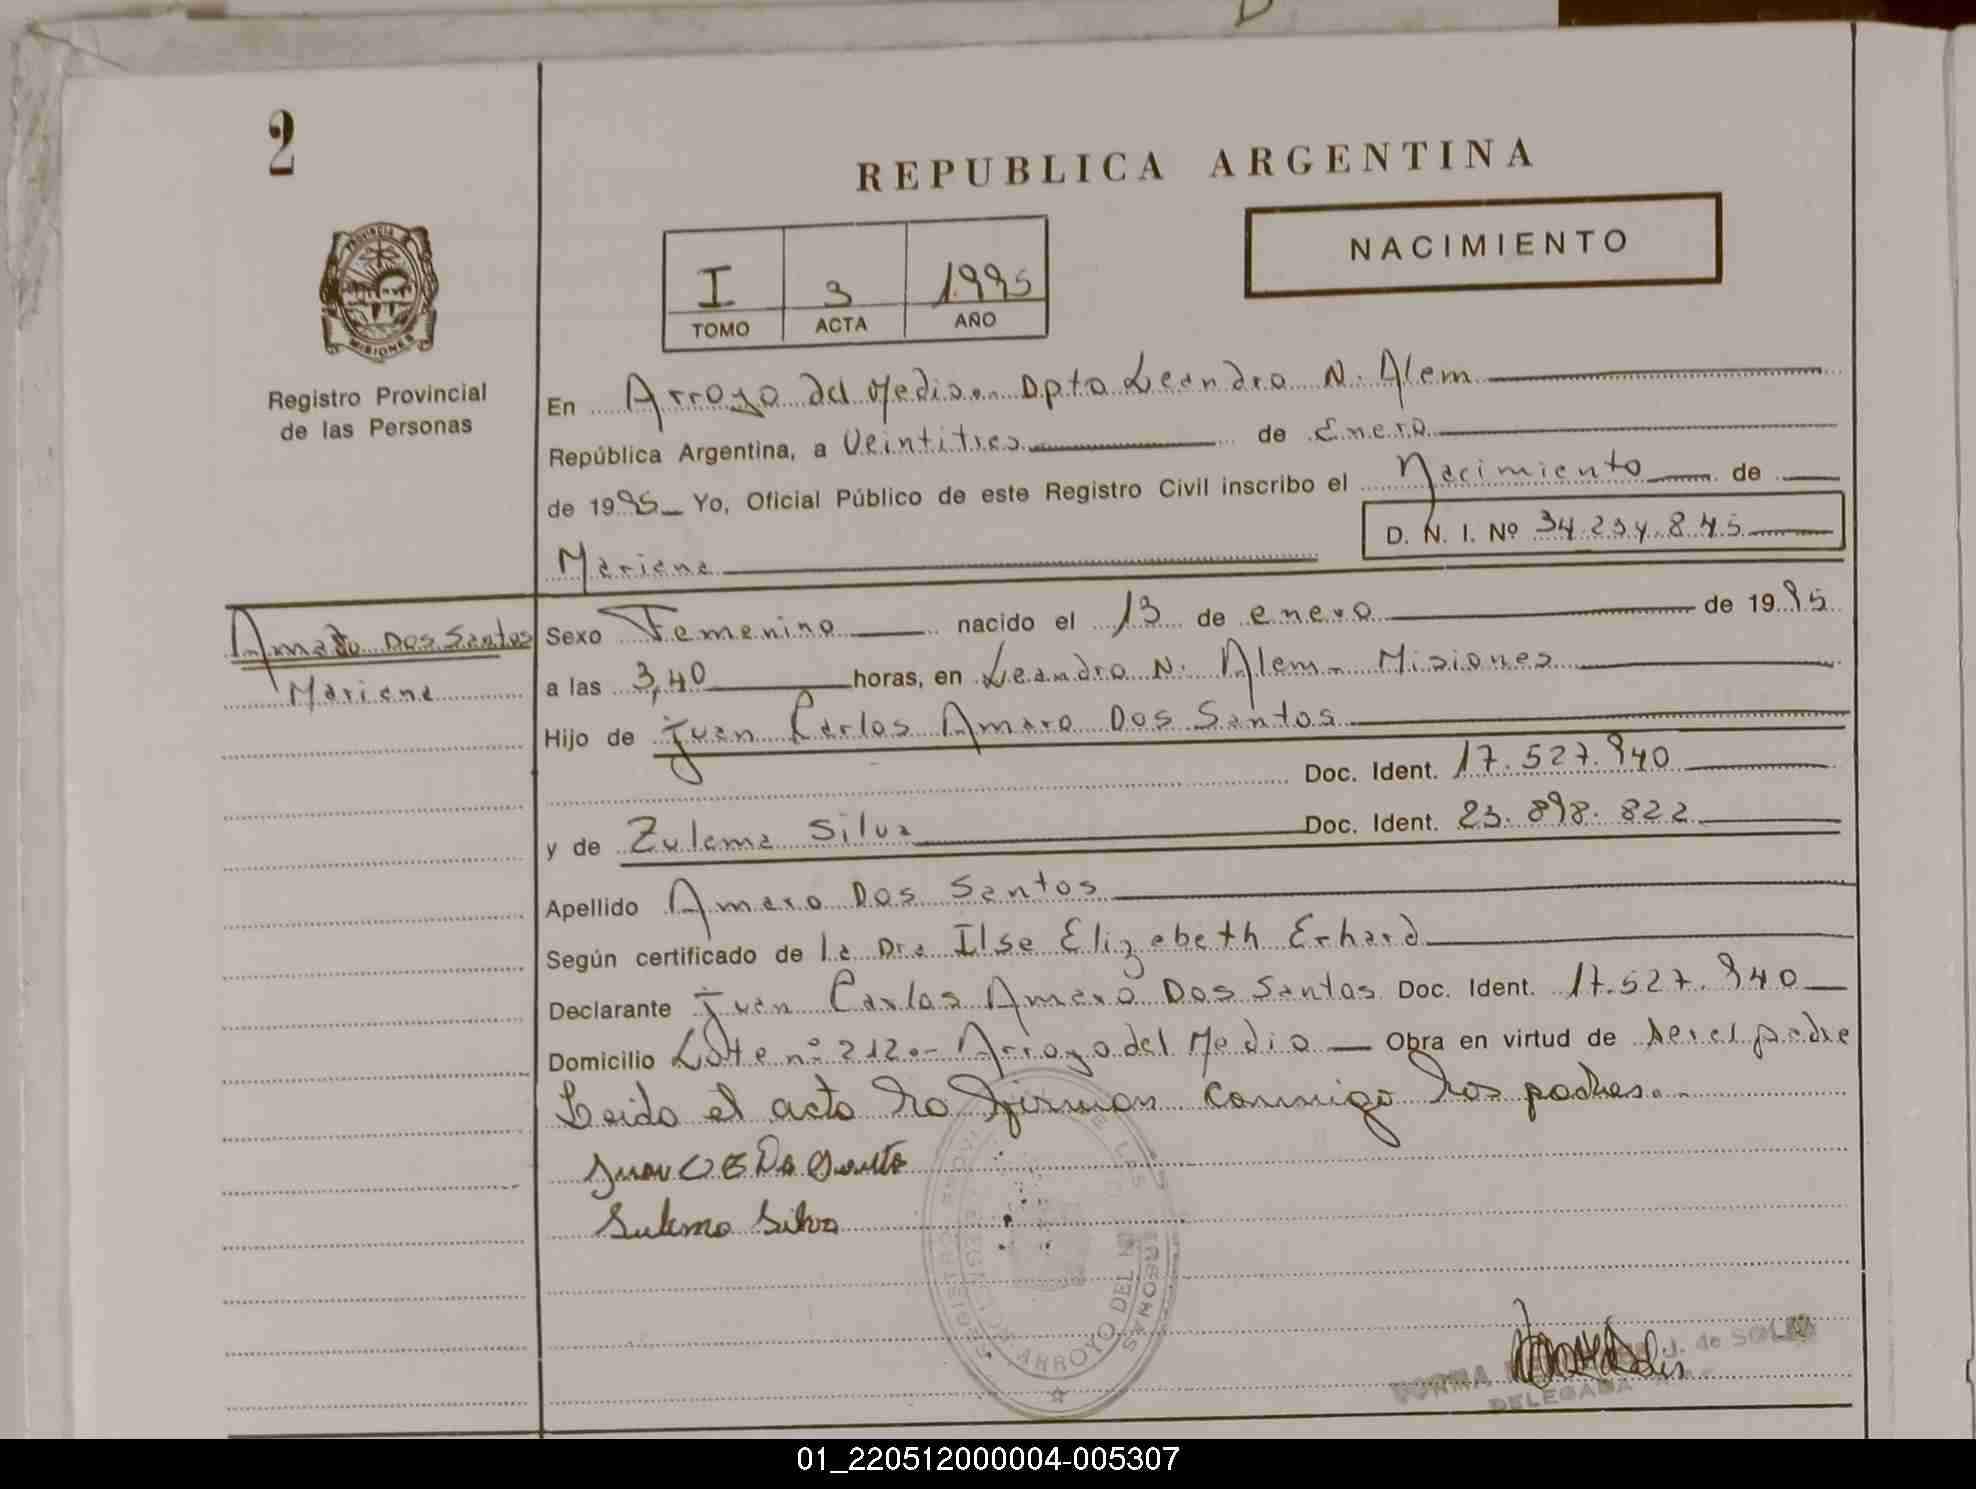 2
REPUBLICA ARGENTINA
NACIMIENTO
I 3 1995
TOMO ACTA AÑO
PROVINCIA
MISIONES
Registro Provincial
de las Personas
En Arroyo del Medio.- Dpto Leandro N. Alem
República Argentina, a Veintitres de Enero
de 1995 Yo, Oficial Público de este Registro Civil inscribo el Nacimiento de
D. N. I. Nº 34.234.845
Mariana
Amaro Dos Santos
Mariana
Sexo Femenino nacido el 13 de enero de 1995
a las 3,40 horas, en Leandro N. Alem - Misiones
Hijo de Juan Carlos Amaro Dos Santos
Doc. Ident. 17.527.940
y de Zulema Silva Doc. Ident. 23.898.822
Apellido Amaro Dos Santos
Según certificado de la Dra Ilse Elizabeth Erhard
Declarante Juan Carlos Amaro Dos Santos Doc. Ident. 17.527.940
Domicilio Lote nº 212.- Arroyo del Medio Obra en virtud de ser el padre
Leido el acta lo firman conmigo los padres.-
Juan C Dos Santos
Sulema Silva
ARROYO DEL
J. de SOLIS
DELEGADA
01_220512000004-005307